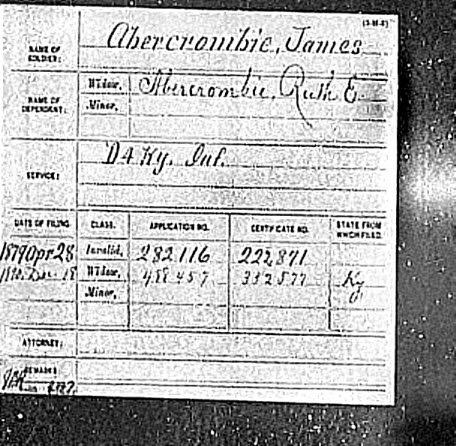 (3-H-8)
NAME OF SOLDIER: Abercrombie, James
NAME OF DEPENDENT: Widow, Abercrombie, Ruth E.
Minor,
SERVICE: D 4 Ky. Inf.
DATE OF FILING. CLASS. APPLICATION NO. CERTIFICATE NO. STATE FROM WHICH FILED.
1879 Apr 28 Invalid, 282,116 222,871
Dec 18 Widow, 488,457 332,577 Ky
Minor,
ATTORNEY:
REMARKS: